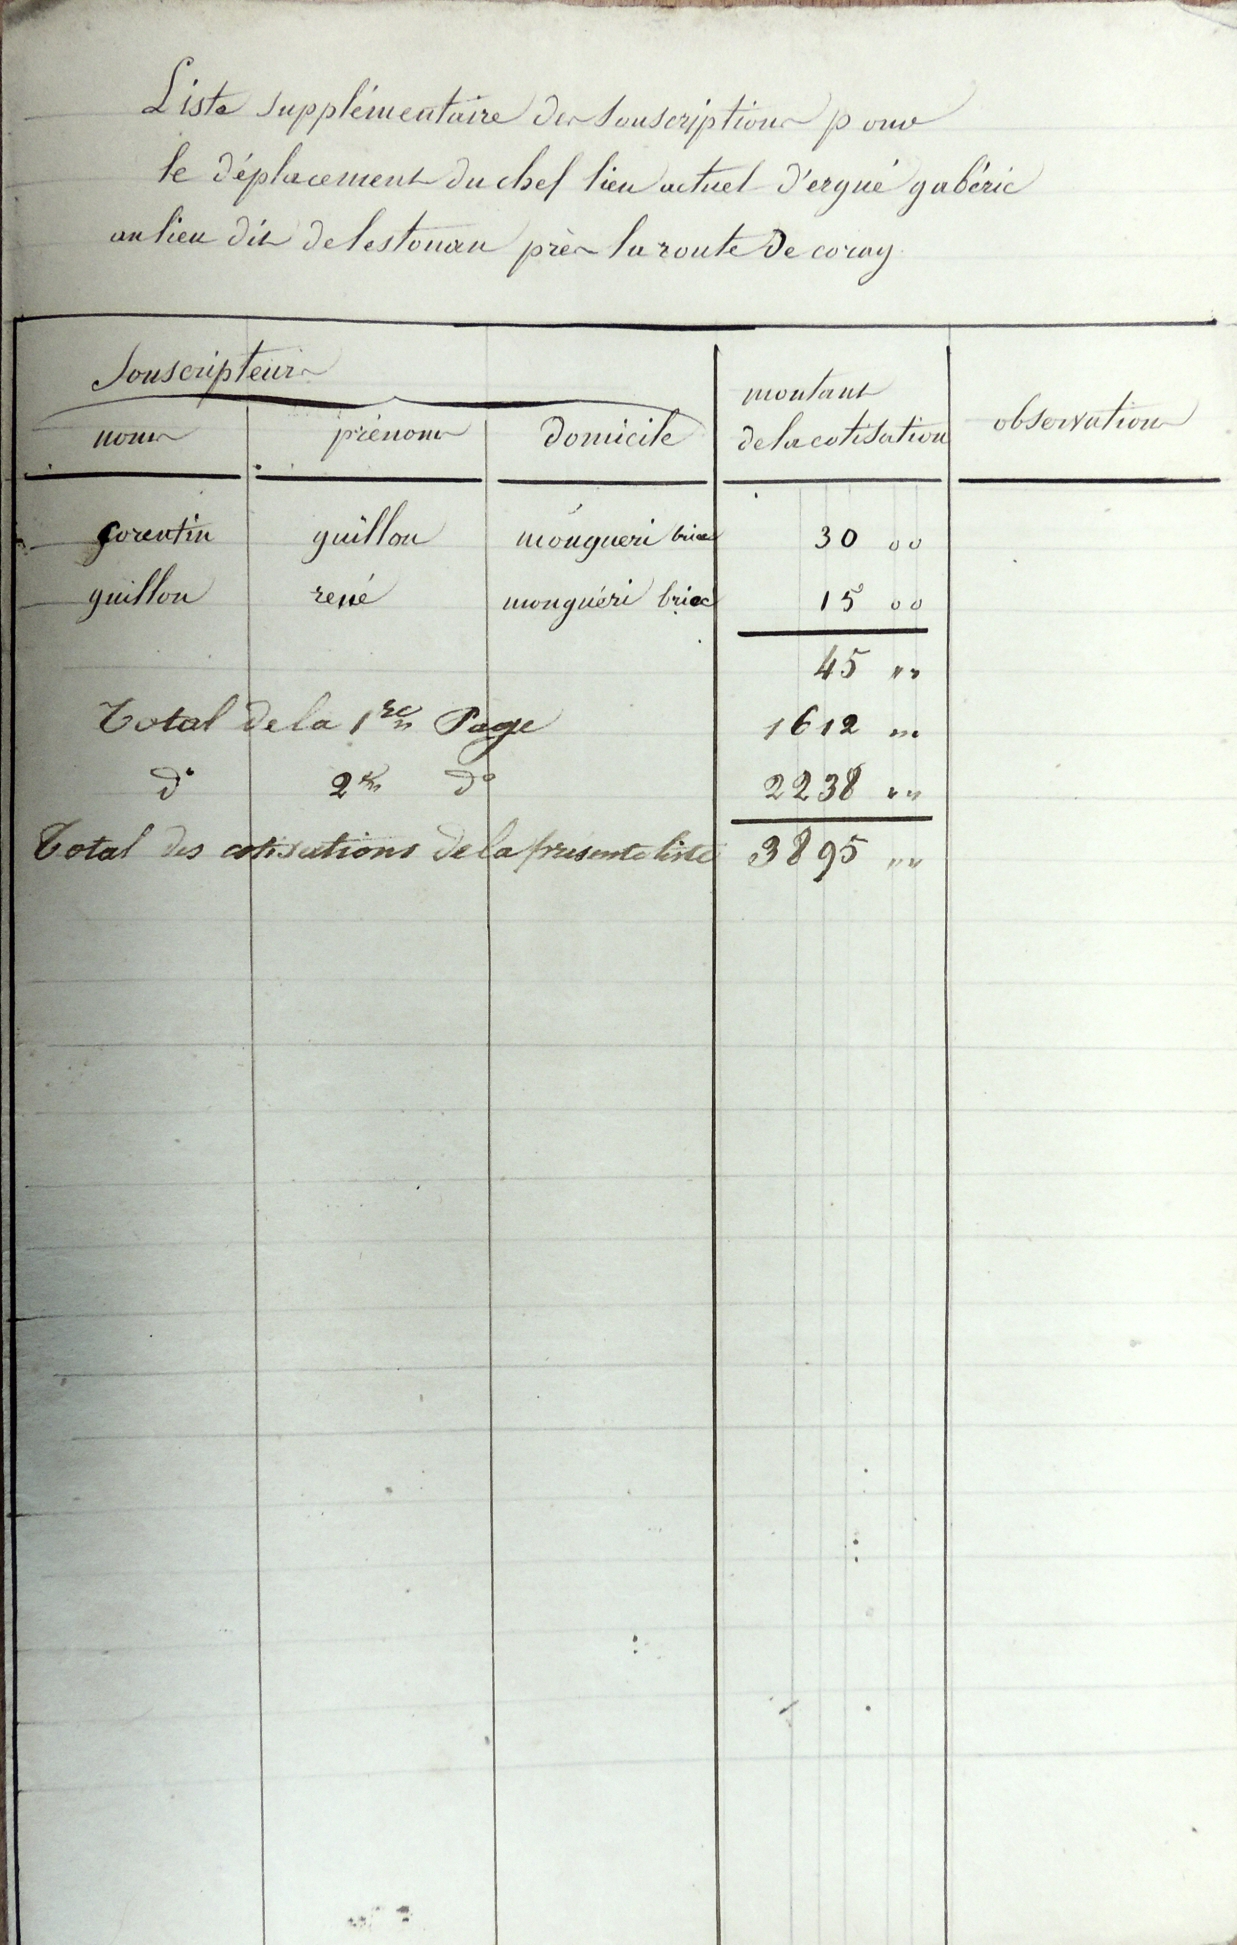 Liste supplémentaire des souscriptions pour
le déplacement du chef lieu actuel d'ergué gabéric
au lieu dit de lestonan près la route de coray
Souscripteurs
noms prénoms domicile montant de la cotisation observations
Corentin guillou mouguéri briec 30 00
guillou rené mouguéri briec 15 00
45 "
Total de la 1re Page 1612 "
do 2e do 2238 "
Total des cotisations de la présente liste 3895 "